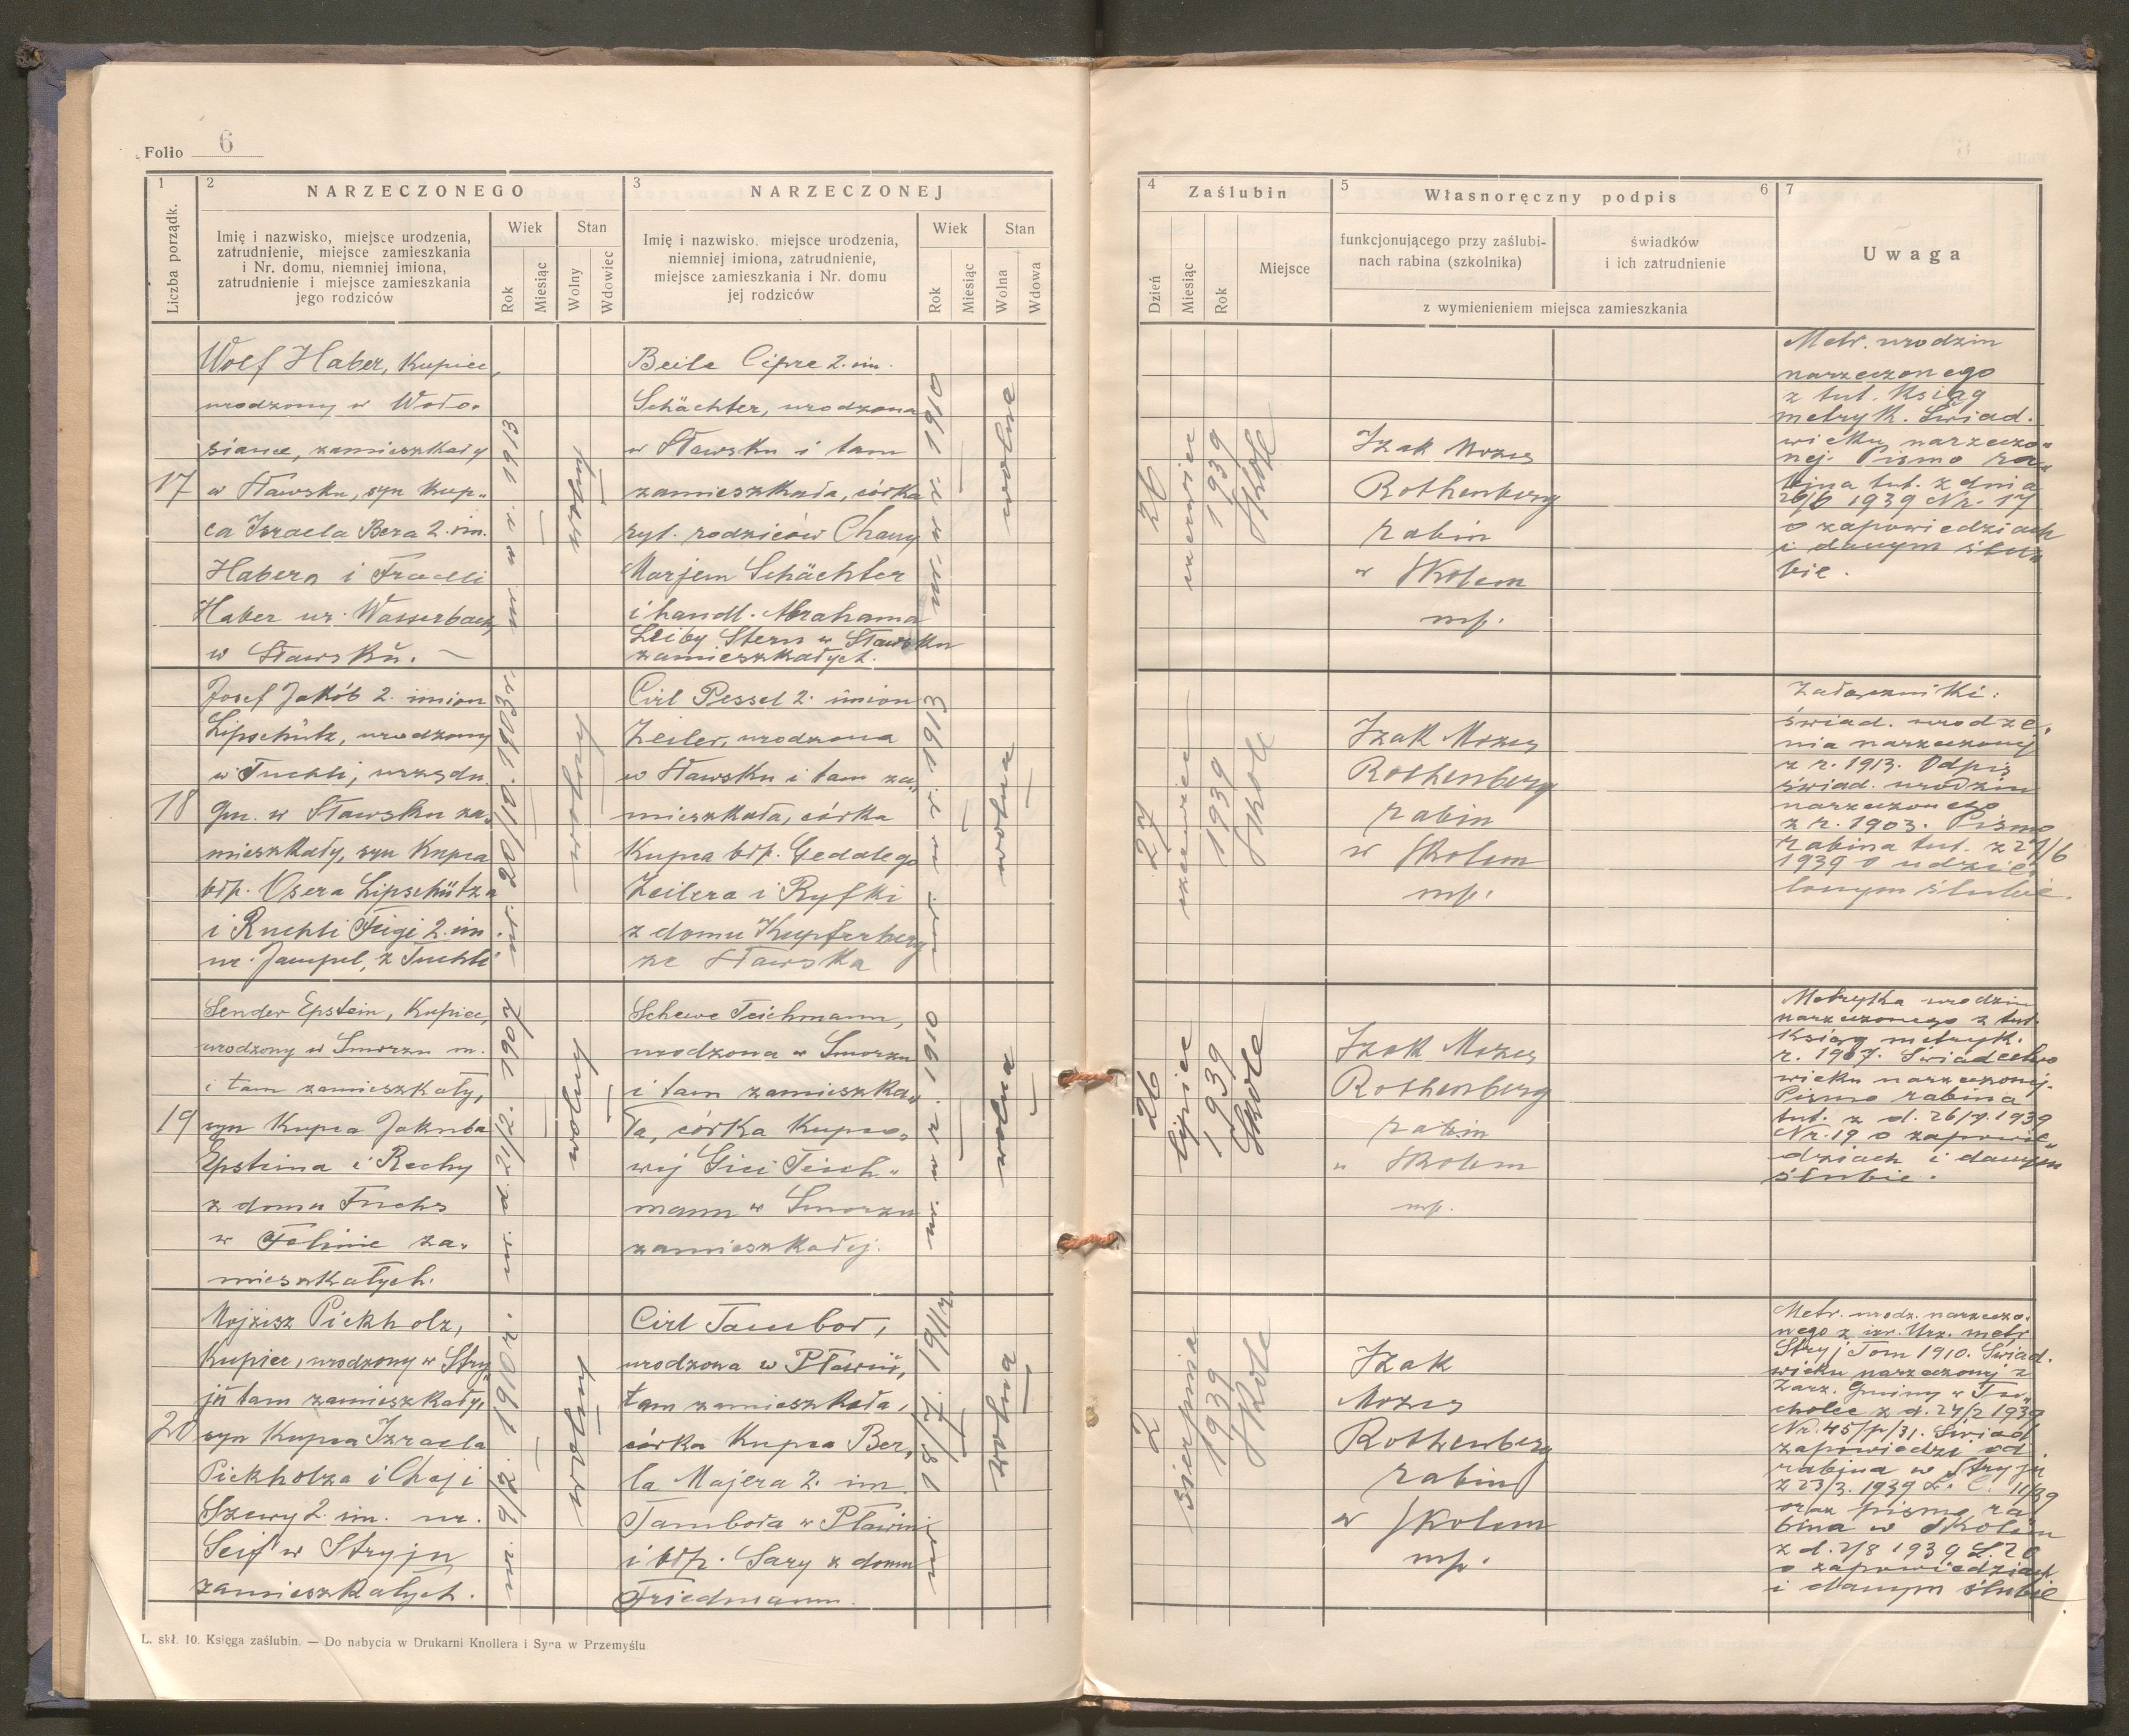 Folio 6
1
Liczba porządk.
2
NARZECZONEGO
Imię i nazwisko, miejsce urodzenia,
zatrudnienie, miejsce zamieszkania
i Nr. domu, niemniej imiona,
zatrudnienie i miejsce zamieszkania
jego rodziców
Wiek
Rok
Miesiąc
Stan
Wolny
Wdowiec
3
NARZECZONEJ
Imię i nazwisko, miejsce urodzenia,
niemniej imiona, zatrudnienie,
miejsce zamieszkania i Nr. domu
jej rodziców
Wiek
Rok
Miesiąc
Stan
Wolna
Wdowa
4
Zaślubin
Dzień
Miesiąc
Rok
Miejsce
5
Własnoręczny podpis
6
funkcjonującego przy zaślubi-
nach rabina (szkolnika)
świadków
i ich zatrudnienie
z wymienieniem miejsca zamieszkania
7
Uwaga
17
Wolf Haber, Kupiec,
urodzony w Woło-
siance, zamieszkały
w Sławsku, syn Kup-
ca Izraela Bera 2. im.
Habera i Fradli
Haber ur. Wasserbach
w Sławsku.
ur. w r. 1913
wolny
Beile Cipre 2. im.
Schächter, urodzona
w Sławsku i tam
zamieszkała, córka
ryt. rodziców Chany
Marjem Schächter
i handl. Abrahama
Leiby Stern w Sławsku
zamieszkałych.
ur. w r. 1910
wolna
26
czerwiec
1939
Skole
Izak Mozes
Rothenberg
rabin
w Skolem
mp.
Metr. urodzin
narzeczonego
z tut. Ksiąg
metryk. Świad.
wieku narzeczo-
nej. Pismo ra-
bina tut. z dnia
26/6 1939 Nr. 17
o zapowiedziach
i danym ślu-
bie.
18
Josef Jakób 2. imion
Lipschütz, urodzony
w Tuchli, urzędn.
gm. w Sławsku za-
mieszkały, syn Kupca
błp. Osera Lipschütza
i Ruchli Feigi 2. im.
ur. Jampel, z Tuchli
ur. 20/10. 1903 r.
wolny
Cirl Pessel 2. imion
Zeiler, urodzona
w Sławsku i tam za-
mieszkała, córka
Kupca błp. Gedalego
Zeilera i Ryfki
z domu Kupferberg
ze Sławska
ur. w r. 1913
wolna
27
czerwiec
1939
Skole
Izak Mozes
Rothenberg
rabin
w Skolem
mp.
Załączniki:
świad. urodze-
nia narzeczonej
z r. 1913. Odpis
świad. urodzin
narzeczonego
z r. 1903. Pismo
rabina tut. z 27/6
1939 o udzie-
lonym ślubie.
19
Sender Epstein, Kupiec,
urodzony w Smorzu m.
i tam zamieszkały,
syn Kupca Jakuba
Epsteina i Rechy
z domu Fuchs
w Felinie za-
mieszkałych.
ur. 2/12. 1907
wolny
Schewe Teichmann,
urodzona w Smorzu
i tam zamieszka-
ła, córka Kupco-
wej Gici Teich-
mann w Smorzu
zamieszkałej.
ur. w r. 1910
wolna
26
lipiec
1939
Skole
Izak Mozes
Rothenberg
rabin
w Skolem
mp.
Metryka urodzin
narzeczonego z tut.
Ksiąg metryk.
r. 1907. Świadectwo
wieku narzeczonej.
Pismo rabina
tut. z d. 26/7. 1939
Nr. 19 o zapowie-
dziach i danym
ślubie.
20
Mojżesz Pickholz,
Kupiec, urodzony w Stry-
ju tam zamieszkały,
syn Kupca Izraela
Pickholza i Chaji
Szewy 2. im. ur.
Seif w Stryju
zamieszkałych.
wolny
Cirl Tambor,
urodzona w Pławiu,
tam zamieszkała,
córka Kupca Ber-
la Majera 2. im.
Tambora w Pławiu
i błp. Sary z domu
Friedmann.
ur. 18/7. 1911 r.
wolna
2
sierpnia
1939
Skole
Izak
Mozes
Rothenberg
rabin
w Skolem
mp.
Metr. urodz. narzeczo-
nego z izr. Urz. metr.
Stryj Tom 1910. Świad.
wieku narzeczonej z
Zarz. Gminy w Tu-
cholce z d. 24/2 1939
Nr. 45/p/31. Świad
zapowiedzi od
rabina w Stryju
z 23/3. 1939 L. C. 11/39
oraz pismo ra-
bina w Skolem
z d. 2/8 1939 L. 20
o zapowiedziach
i danym ślubie
L. skł. 10. Księga zaślubin. — Do nabycia w Drukarni Knollera i Syna w Przemyślu